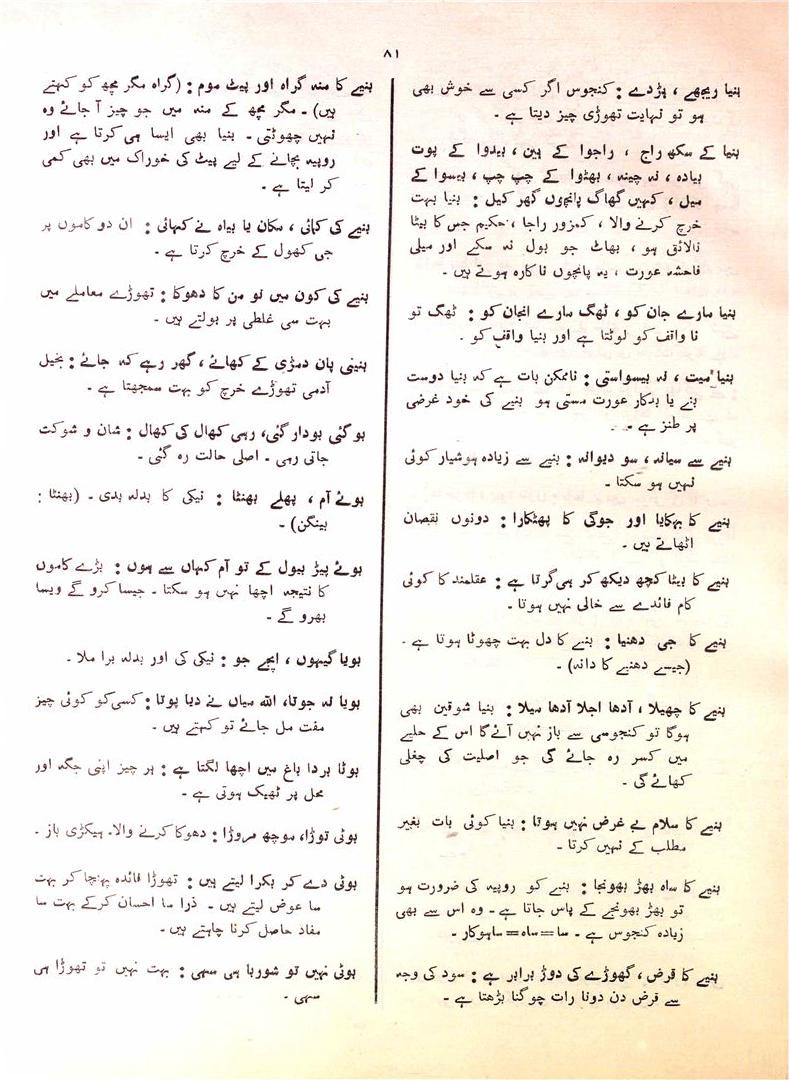 ۸۱
بنیا ریجھے ، ہڑدے : کنجوس اگر کسی سے خوش بھی
ہو تو نہایت تھوڑی چیز دیتا ہے ۔
بنیا کے سکھ راج ، راجوا کے ہین ، بیدوا کے پوت
بیادہ ، نہ چینہ ، بھڈوا کے چپ چپ ، بیسوا کے
میل ، کہیں گھاگ پانچوں گھر کیل : بنیا بہت
خرچ کرنے والا ، کمزور راجا ، حکیم جس کا بیٹا
نالائق ہو ، بھاٹ جو بول نہ سکے اور میلی
فاحشہ عورت ، یہ پانچوں ناکارہ ہوتے ہیں ۔
بنیا مارے جان کو ، ٹھگ مارے انجان کو : ٹھگ تو
نا واقف کو لوٹتا ہے اور بنیا واقف کو ۔
بنیا میت ، نہ بیسواستی : ناممکن بات ہے کہ بنیا دوست
بنے یا بدکار عورت ستی ہو بنیے کی خود غرضی
پر طنز ہے ۔
بنیے سے سیانہ ، سو دیوانہ : بنیے سے زیادہ ہوشیار کوئی
نہیں ہو سکتا ۔
بنیے کا بہکایا اور جوگی کا پھٹکارا : دونوں نقصان
اٹھاتے ہیں ۔
بنیے کا بیٹا کچھ دیکھ کر ہی گرتا ہے : عقلمند کا کوئی
کام فائدے سے خالی نہیں ہوتا ۔
بنیے کا جی دھنیا : بنیے کا دل بہت چھوٹا ہوتا ہے ۔
(جیسے دھنیے کا دانہ) ۔
بنیے کا چھیلا ، آدھا اجلا آدھا میلا : بنیا شوقین بھی
ہوگا تو کنجوسی سے باز نہیں آئے گا اس کے حلیے
میں کسر رہ جائے گی جو اصلیت کی چغلی
کھائے گی ۔
بنیے کا سلام بے غرض نہیں ہوتا : بنیا کوئی بات بغیر
مطلب کے نہیں کرتا ۔
بنیے کا ساہ بھڑ بھونجا : بنیے کو روپیہ کی ضرورت ہو
تو بھڑ بھونجے کے پاس جاتا ہے ۔ وہ اس سے بھی
زیادہ کنجوس ہے ۔ سا = ساہ = ساہوکار ۔
بنیے کا قرض ، گھوڑے کی دوڑ برابر ہے : سود کی وجہ
سے قرض دن دونا رات چوگنا بڑھتا ہے ۔
بنیے کا منہ گراہ اور پیٹ موم : (گراہ مگر مچھ کو کہتے
ہیں) ۔ مگر مچھ کے منہ میں جو چیز آ جائے وہ
نہیں چھوٹتی ۔ بنیا بھی ایسا ہی کرتا ہے اور
روپیہ بچانے کے لیے پیٹ کی خوراک میں بھی کمی
کر لیتا ہے ۔
بنیے کی کمائی ، مکان یا بیاہ نے کھائی : ان دو کاموں پر
جی کھول کے خرچ کرتا ہے ۔
بنیے کی گون میں نو من کا دھوکا : تھوڑے معاملے میں
بہت سی غلطی پر بولتے ہیں ۔
بنینی پان دمڑی کے کھائے ، گھر رہے کہ جائے : بخیل
آدمی تھوڑے خرچ کو بہت سمجھتا ہے ۔
بو گئی بودار گئی، رہی کھال کی کھال : شان و شوکت
جاتی رہی ۔ اصلی حالت رہ گئی ۔
بوئے آم ، پھلے بھنٹا : نیکی کا بدلہ بدی ۔ (بھنٹا :
بینگن) ۔
بوئے پیڑ ببول کے تو آم کہاں سے ہوں : بڑے کاموں
کا نتیجہ اچھا نہیں ہو سکتا ۔ جیسا کرو گے ویسا
بھرو گے ۔
بویا گیہوں ، اپجے جو : نیکی کی اور بدلہ برا ملا ۔
بویا نہ جوتا، اللہ میاں نے دیا پوتا : کسی کو کوئی چیز
مفت مل جائے تو کہتے ہیں ۔
بوٹا بردا باغ میں اچھا لگتا ہے : ہر چیز اپنی جگہ اور
محل پر ٹھیک ہوتی ہے ۔
بوٹی توڑا، موچھ مروڑا : دھوکا کرنے والا۔ ہیکڑی باز ۔
بوٹی دے کر بکرا لیتے ہیں : تھوڑا فائدہ پہنچا کر بہت
سا عوض لیتے ہیں ۔ ذرا سا احسان کرکے بہت سا
مفاد حاصل کرنا چاہتے ہیں ۔
بوٹی نہیں تو شوربا ہی سہی : بہت نہیں تو تھوڑا ہی
سہی ۔